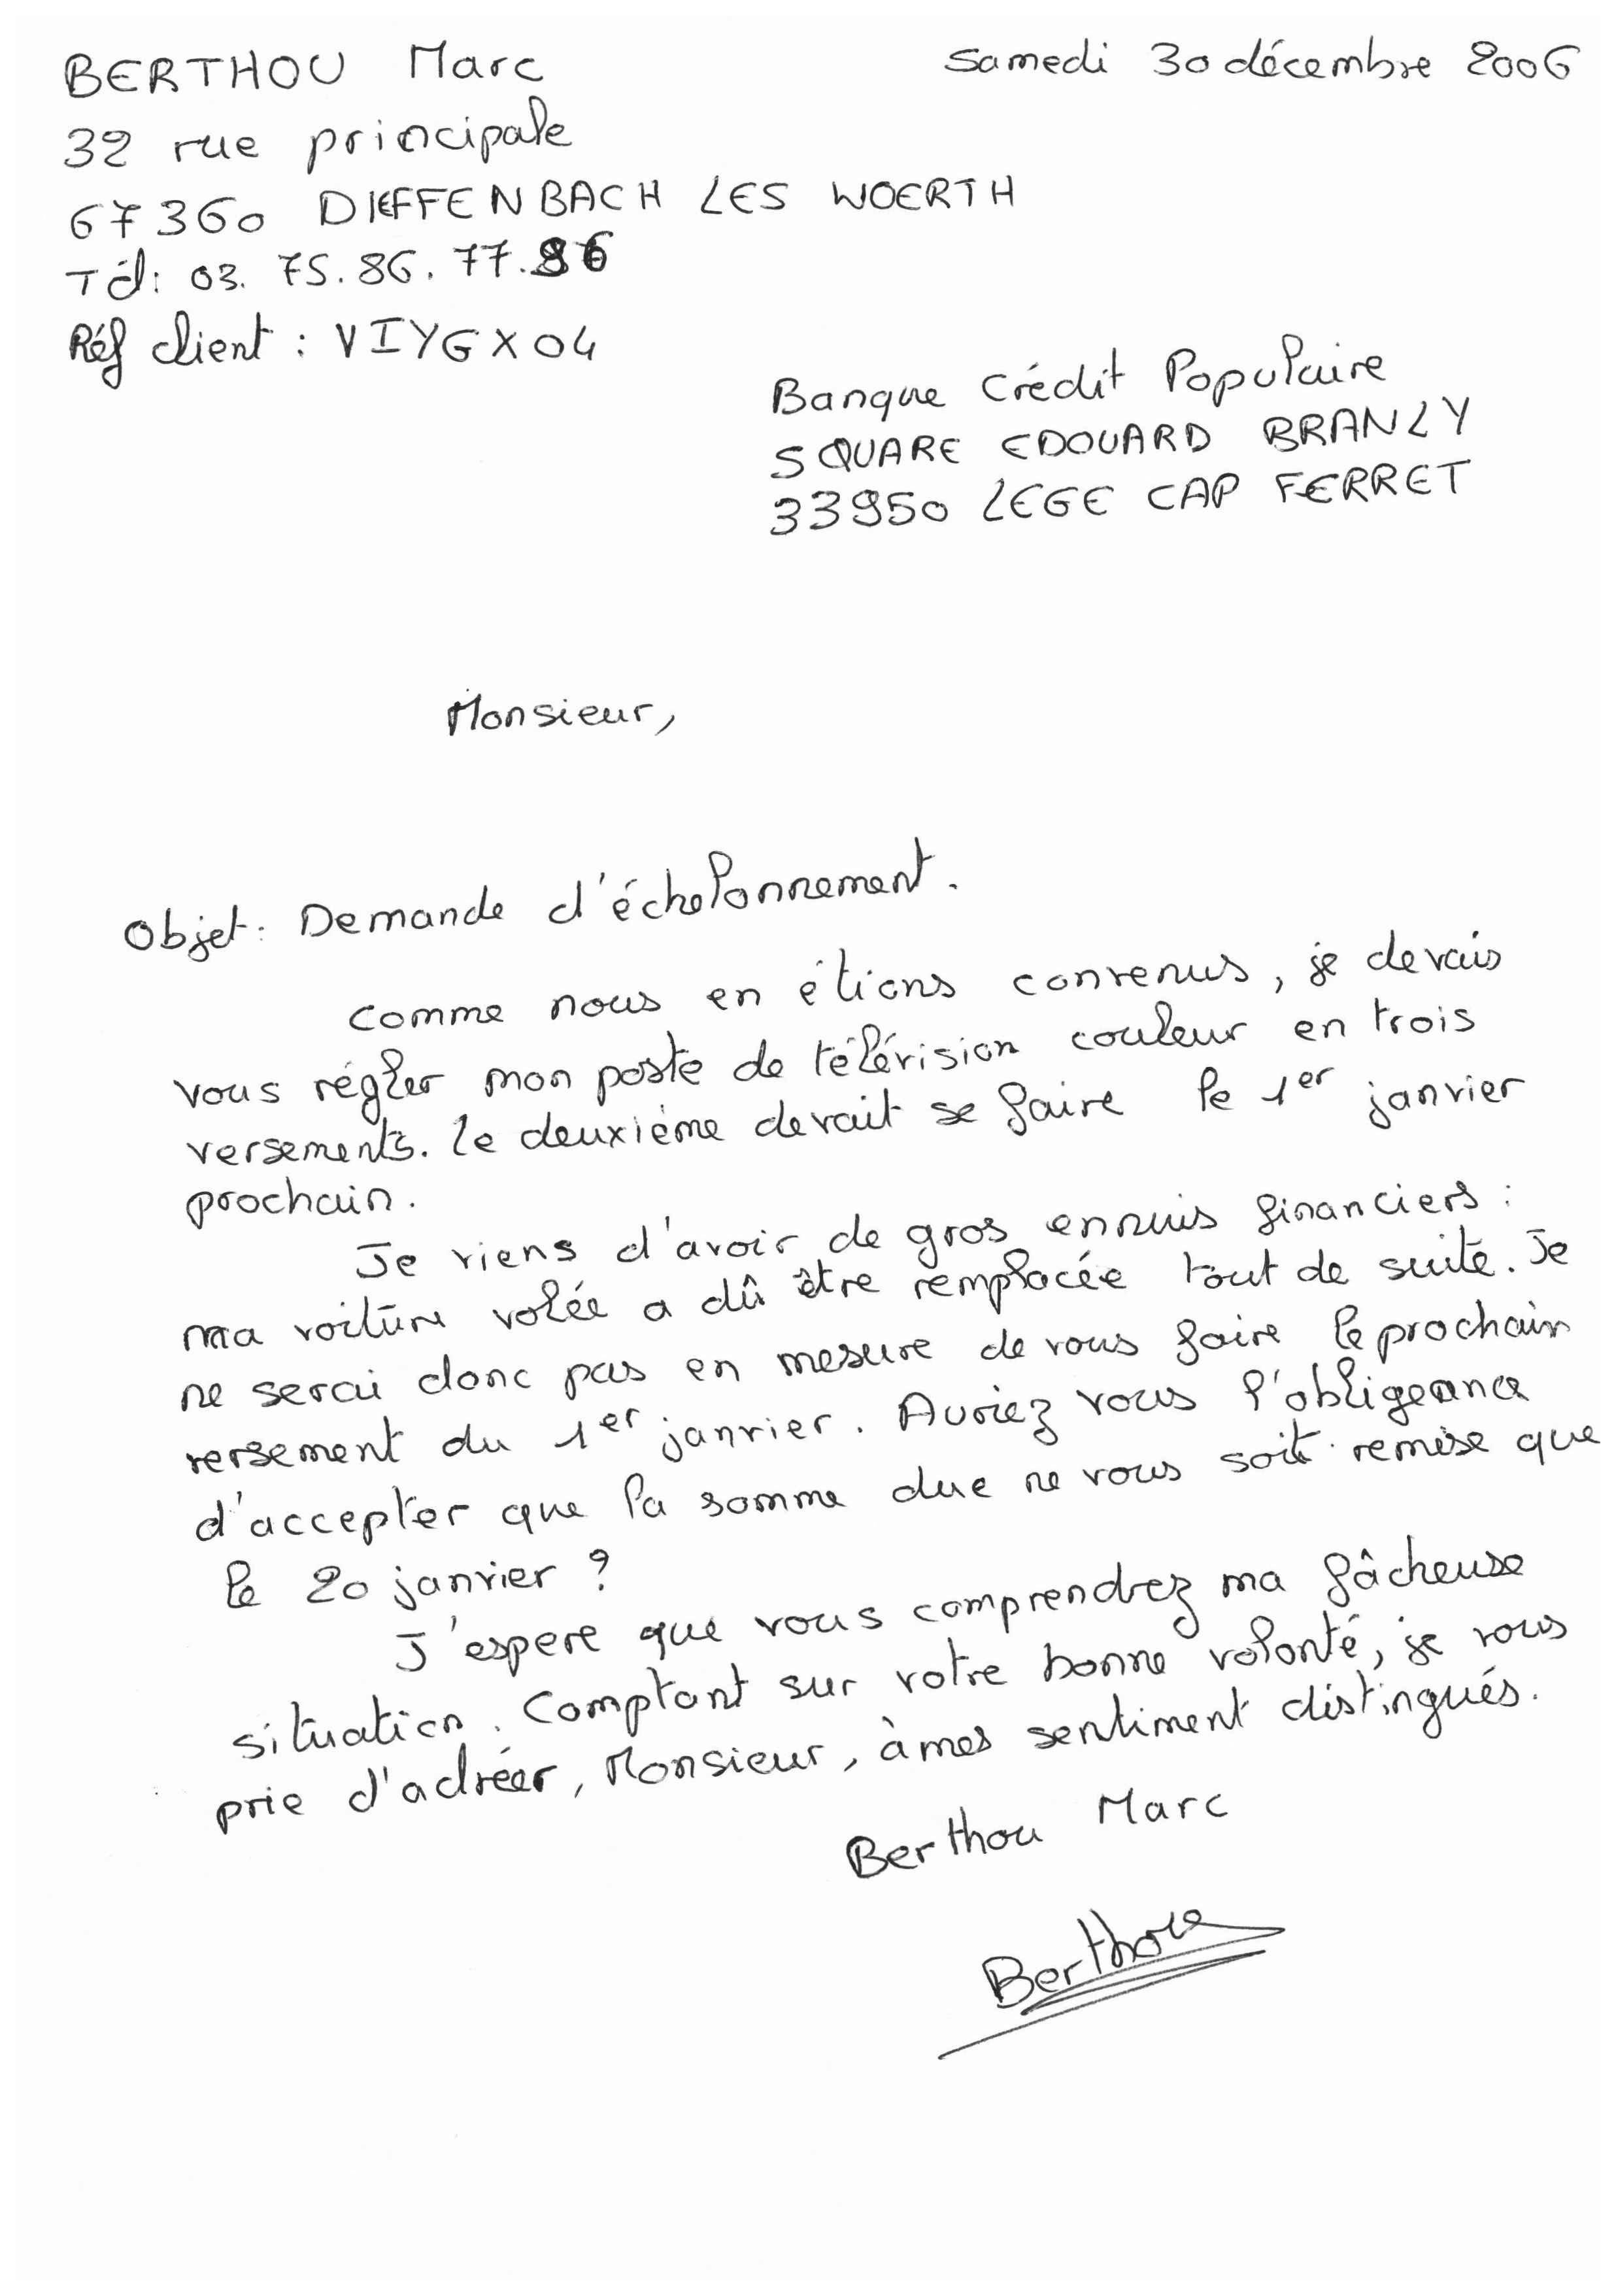 BERTHOU Marc
Samedi 30 décembre 2006
32 rue principale
67360 DIEFFENBACH LES WOERTH
Tél: 03. 75. 86. 77. 86
Réf client : VIYGX04
Banque Crédit Populaire
SQUARE EDOUARD BRANLY
33950 LEGE CAP FERRET
Monsieur,
Objet : Demande d'échelonnement.
Comme nous en étions convenus, je devais
vous régler mon poste de télévision couleur en trois
versements. le deuxième devait se faire le 1er janvier
prochain.
Je viens d'avoir de gros ennuis financiers :
ma voiture volée a dû être remplacée tout de suite. Je
ne serai donc pas en mesure de vous faire le prochain
versement du 1er janvier. Auriez vous l'obligeance
d'accepter que la somme due ne vous soit remise que
le 20 janvier ?
J'espere que vous comprendrez ma fâcheuse
situation. Comptant sur votre bonne volonté, je vous
prie d'adréer, Monsieur, à mes sentiment distingués.
Berthou Marc
Berthou